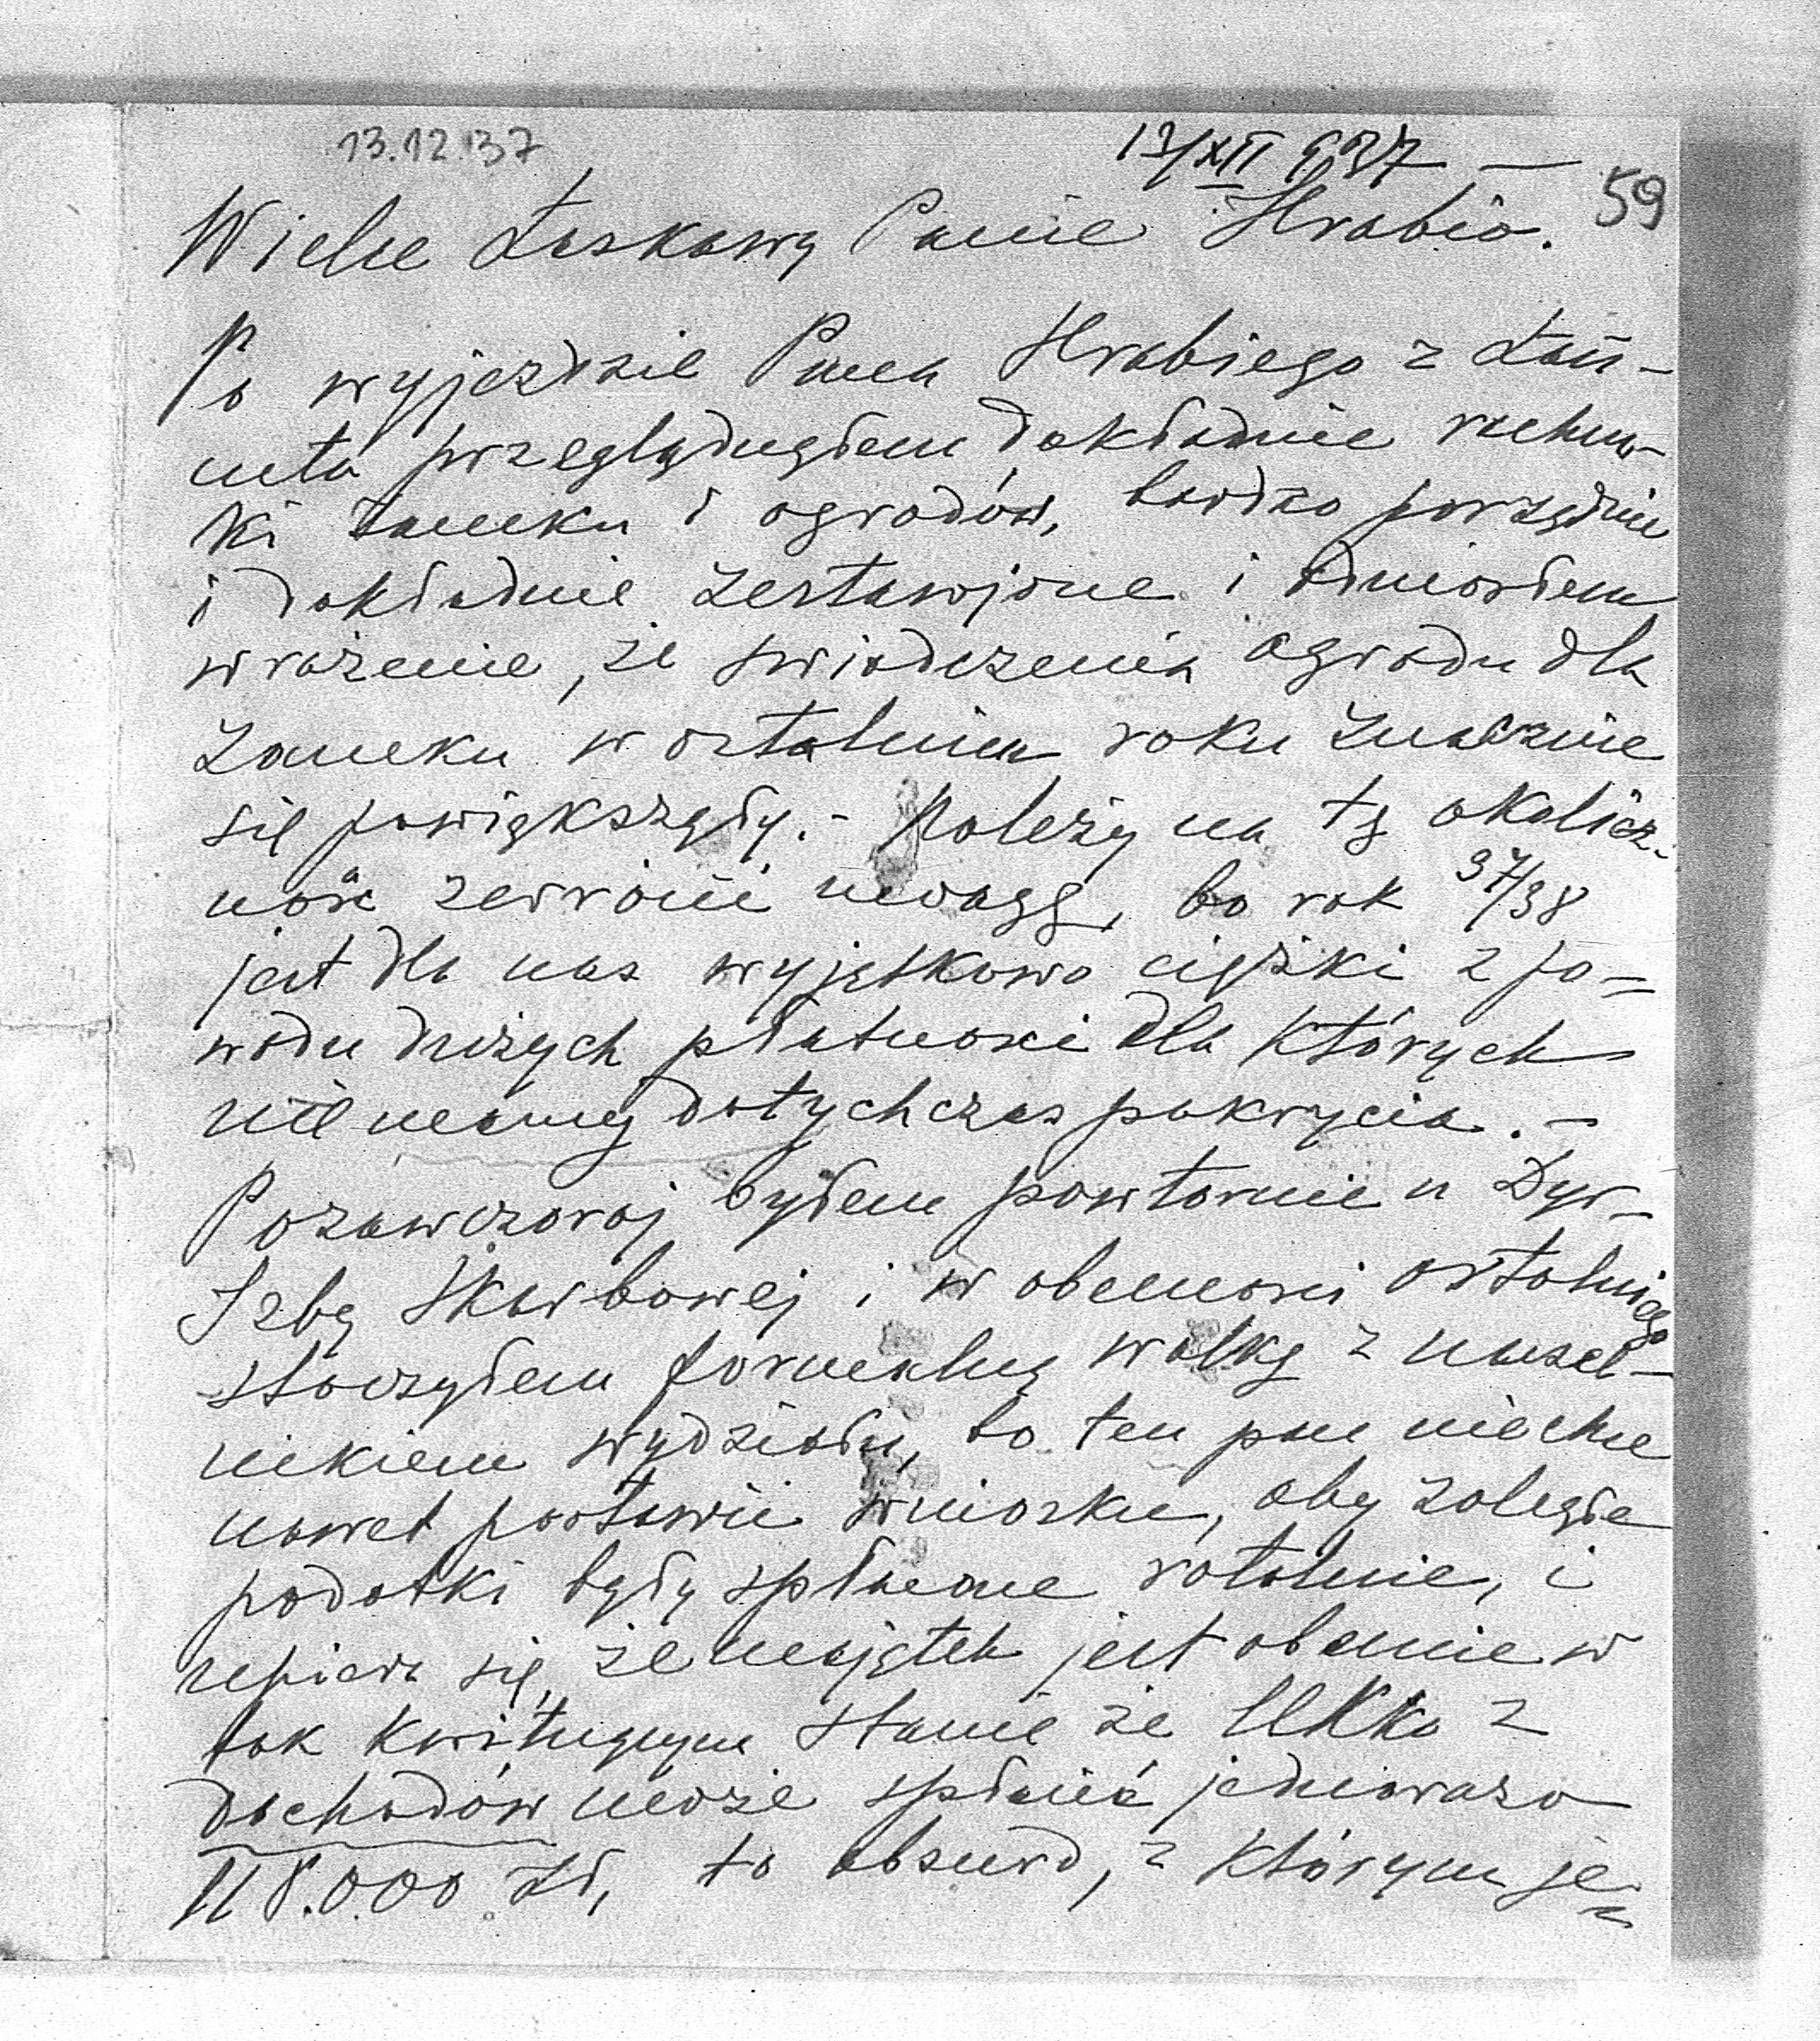 13.12.37
13/XII 937 —
59
Wielce Łaskawy Panie Hrabio.
Po wyjeździe Pana Hrabiego z Łań-
cuta przeglądnąłem dokładnie rachun-
ki zamku i ogrodów, bardzo porządnie
i dokładnie zestawione i odniosłem
wrażenie, że świadczenia ogrodu dla
zamku w ostatnim roku znacznie
się powiększyły.- Należy na tę okolicz-
ność zwrócić uwagę, bo rok 37/38
jest dla nas wyjątkowo ciężki z po=
wodu dużych płatności dla których
nie mamy dotychczas pokrycia.-
Pozawczoraj byłem powtórnie u Dyr-
Izby Skarbowej i w obecności ostatniego
stoczyłem formalną walkę z naczel-
nikiem wydziału, bo ten pan nie chce
nawet postawić wniosku, aby zaległe
podatki były spłacone ratalnie, i
upiera się, że majątek jest obecnie w
tak kwitnącym stanie że lekko z
dochodów może spłacić jednorazowo
118.000 zł, to absurd, z którym je=